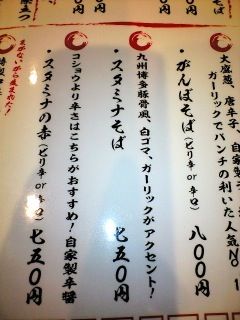 大盛葱、唐辛子、
ガーリックでパンチの利いた人気No1
・がんばそば(ピリ辛or辛口) 八〇〇円
九州博多豚骨風、白ゴマ、ガーリックがアクセント!
・スタミナそば 七五〇円
コショウより辛さはこちらがおすすめ!自家製辛醤
・スタミナの赤(ピリ辛or辛口) 七五〇円
まかないから生まれた!